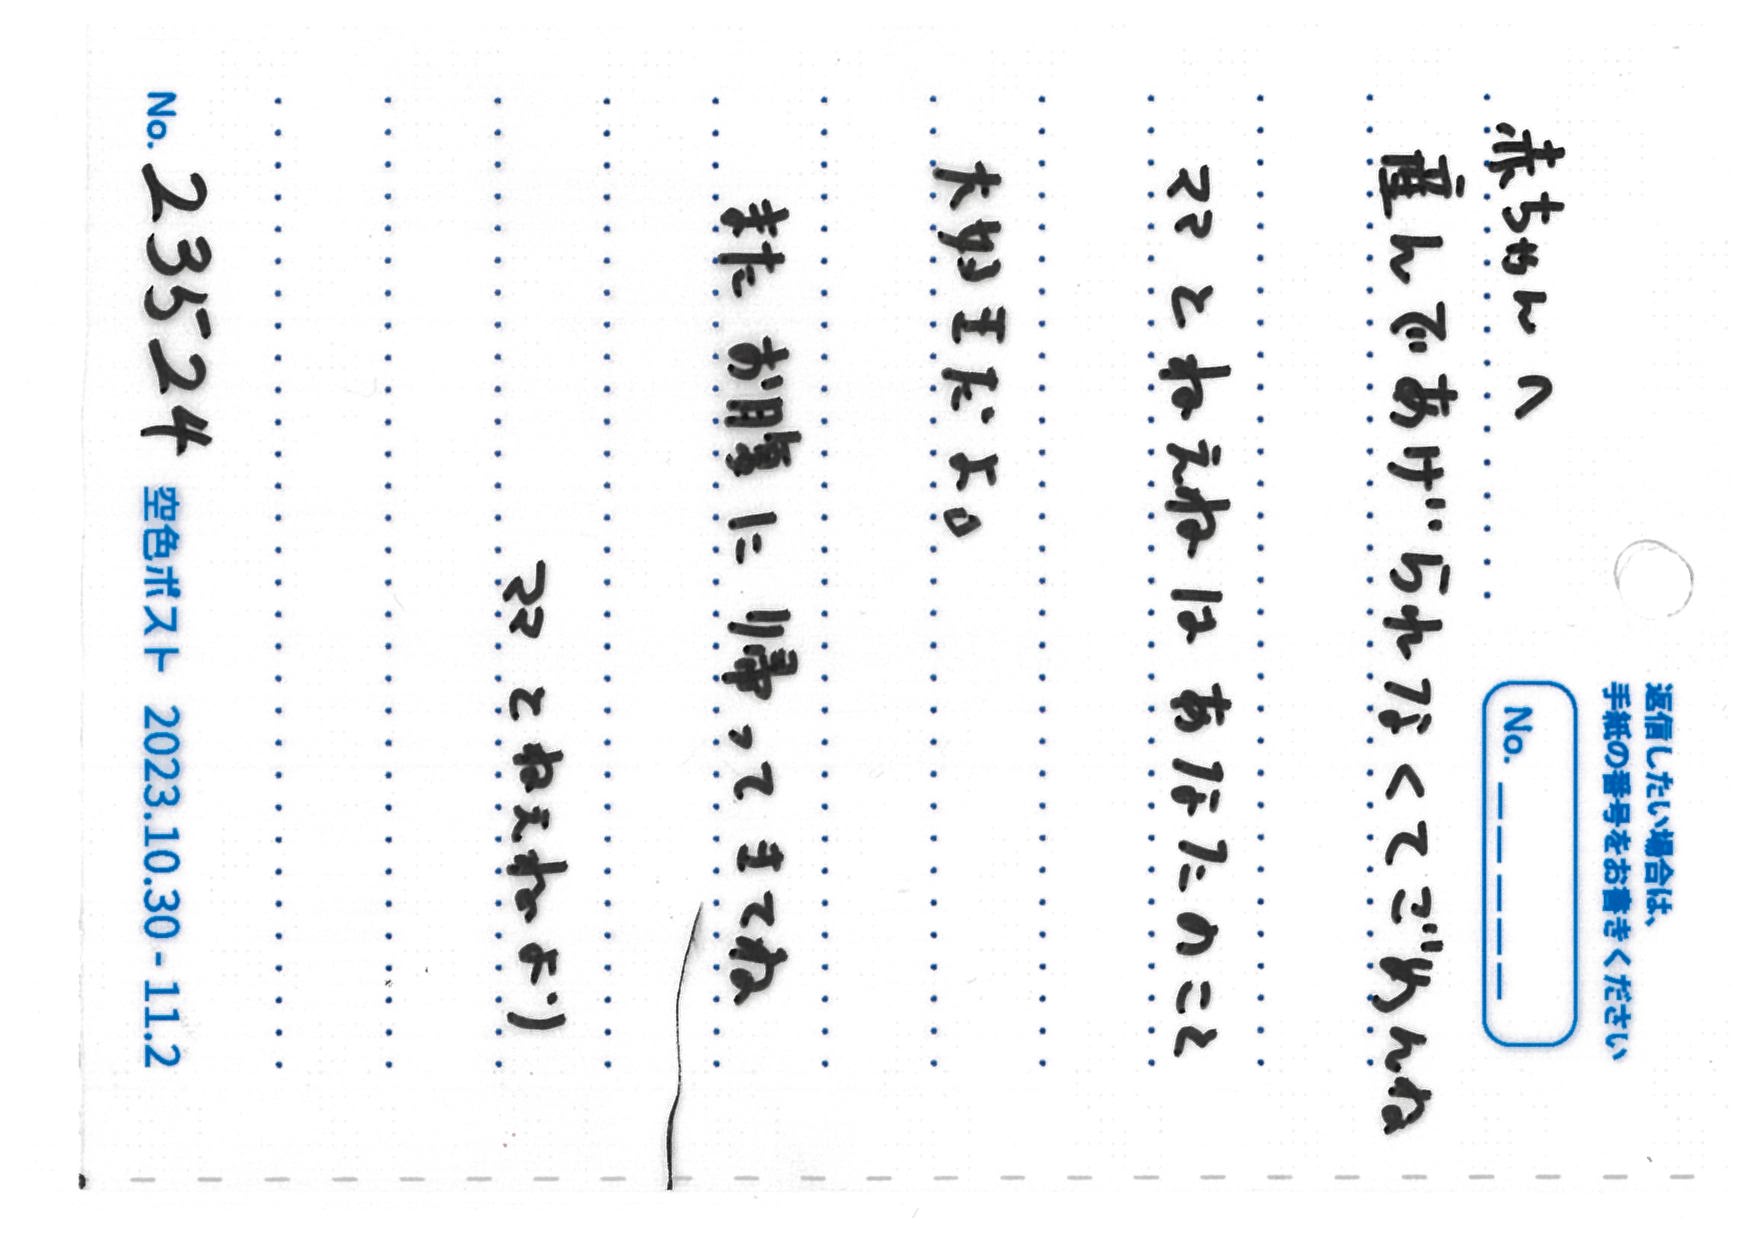 返信したい場合は、
手紙の番号をお書きください
No. _ _ _ _ _
赤ちゃんへ
産んであげられなくてごめんね
ママとねえねはあなたのこと
大好きだよ。
またお腹に帰ってきてね
ママとねえねより
No. 23524 空色ポスト 2023.10.30 - 11.2